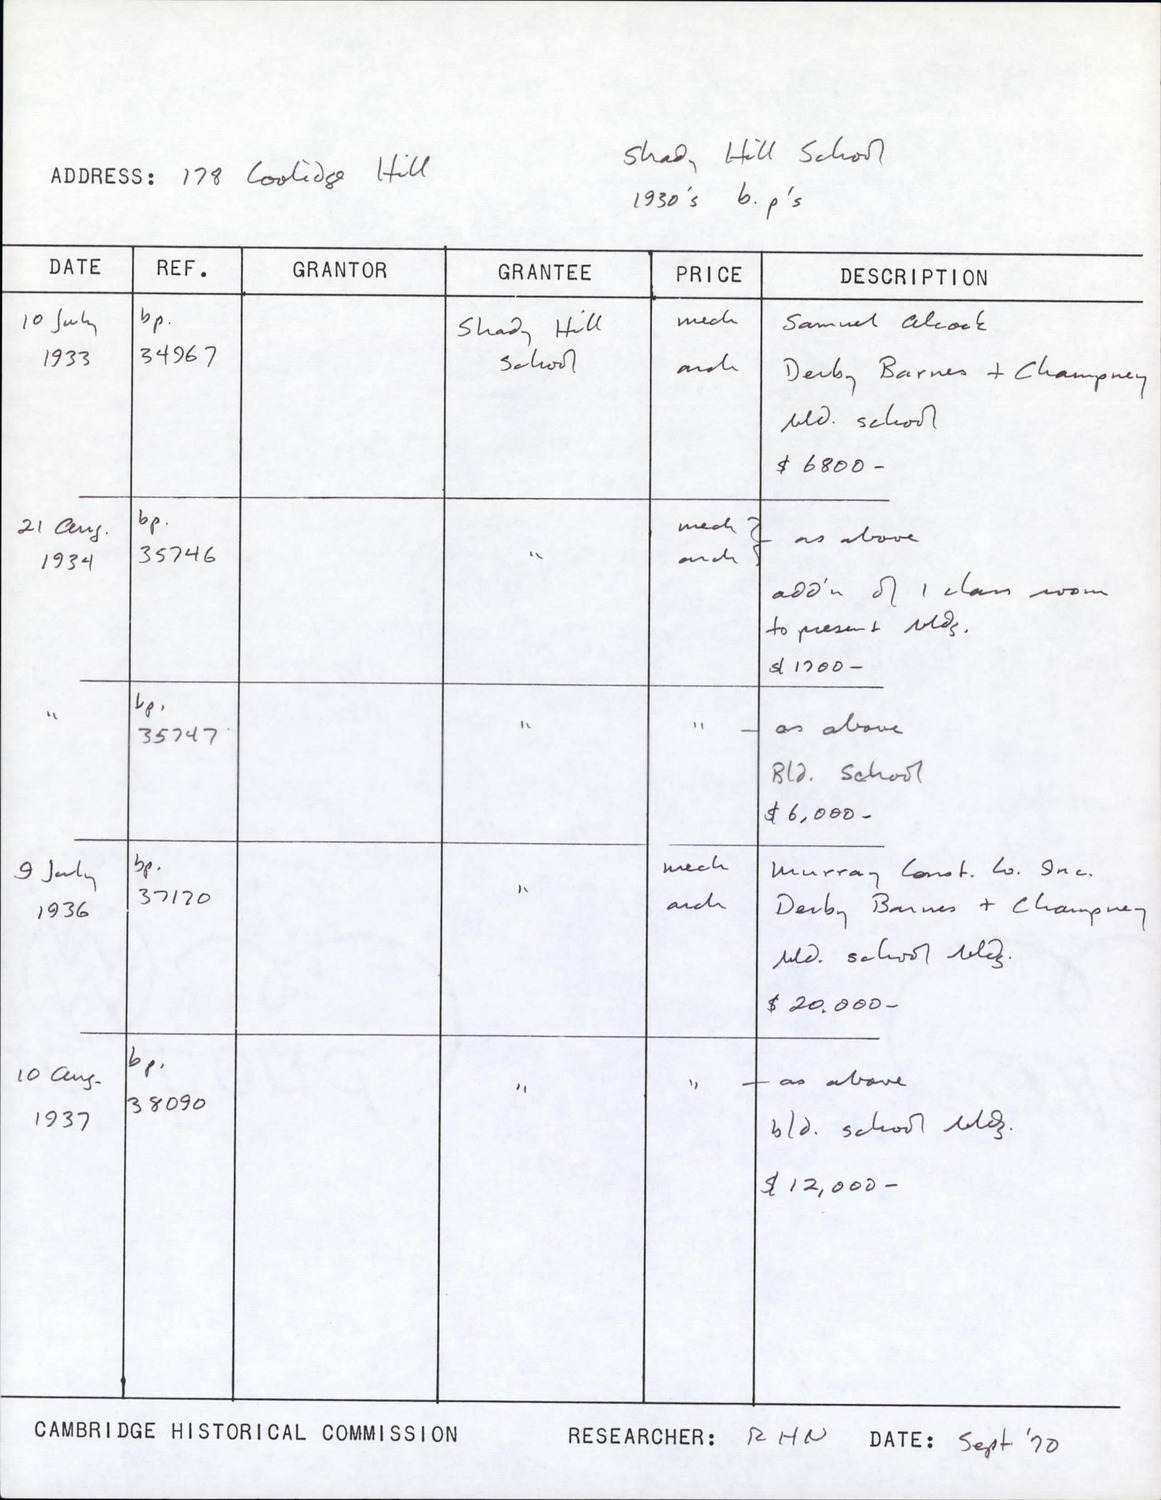 Shady Hill School
ADDRESS: 178 Coolidge Hill
1930's b.p's
DATE REF. GRANTOR GRANTEE PRICE DESCRIPTION
10 July bp. Shady Hill mech Samuel Alcock
1933 34967 School arch Derby Barnes + Champney
bld. school
$ 6800-
21 Aug. bp. mech } as above
1934 35746 " arch
add'n of 1 class room
to present bldg.
$ 1700-
" bp. 35747 " " - as above
Bld. School
$ 6,000-
9 July bp. " mech Murray Const. Co. Inc.
1936 37170 arch Derby Barnes + Champney
bld. school bldg.
$ 20,000-
10 Aug. bp. " " - as above
1937 38090
bld. school bldg.
$ 12,000-
CAMBRIDGE HISTORICAL COMMISSION RESEARCHER: RHN DATE: Sept '70